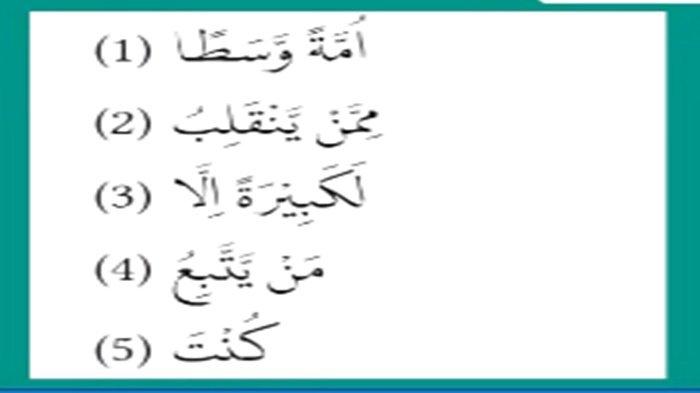 (1) اُمَّةً وَّسَطًا
(2) مِمَّنْ يَّنْقَلِبُ
(3) لَكَبِيْرَةً اِلَّا
(4) مَنْ يَّتَّبِعُ
(5) كُنْتَ